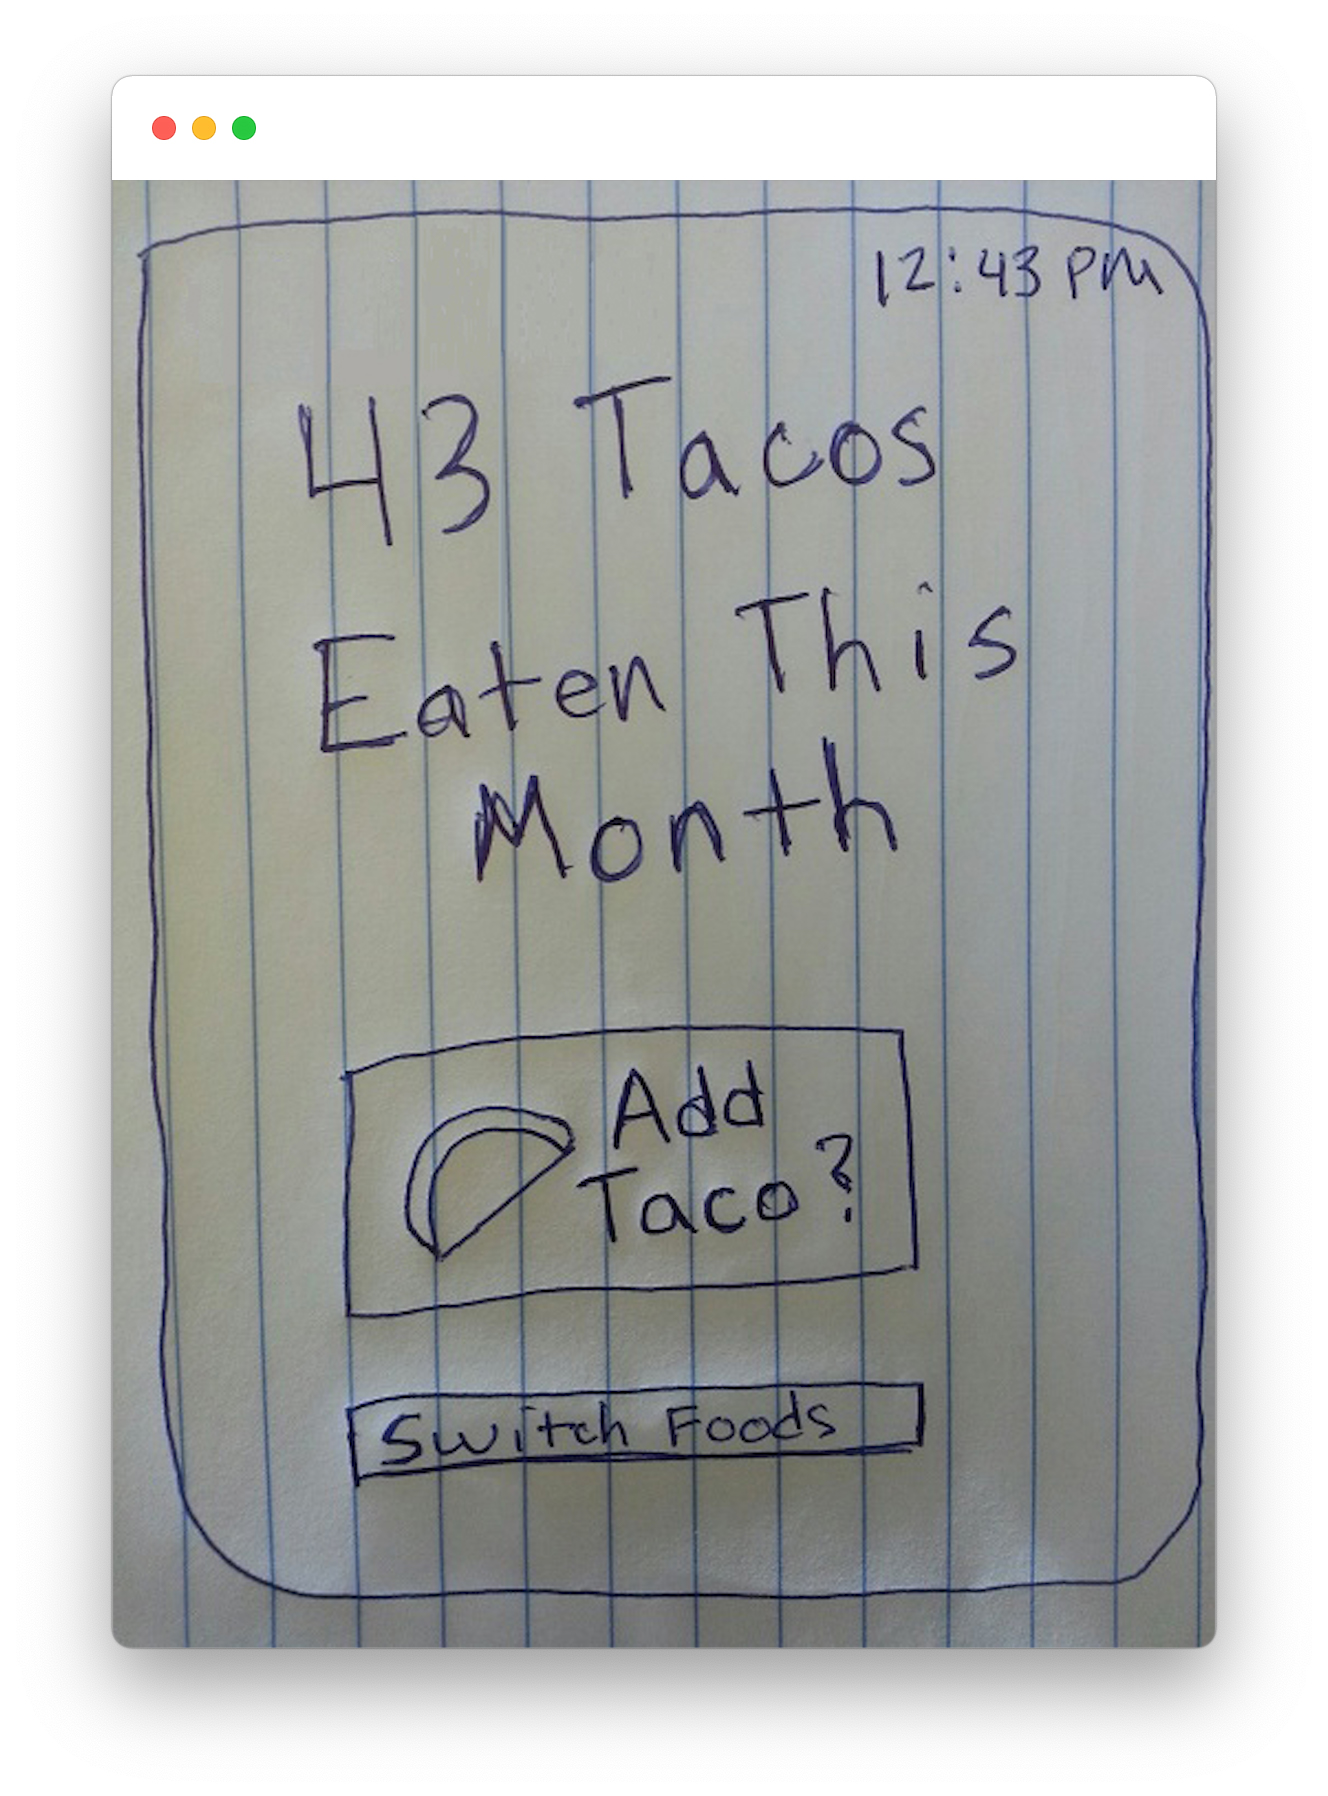 12:43 PM
43 Tacos
Eaten This
Month
Add
Taco?
Switch Foods